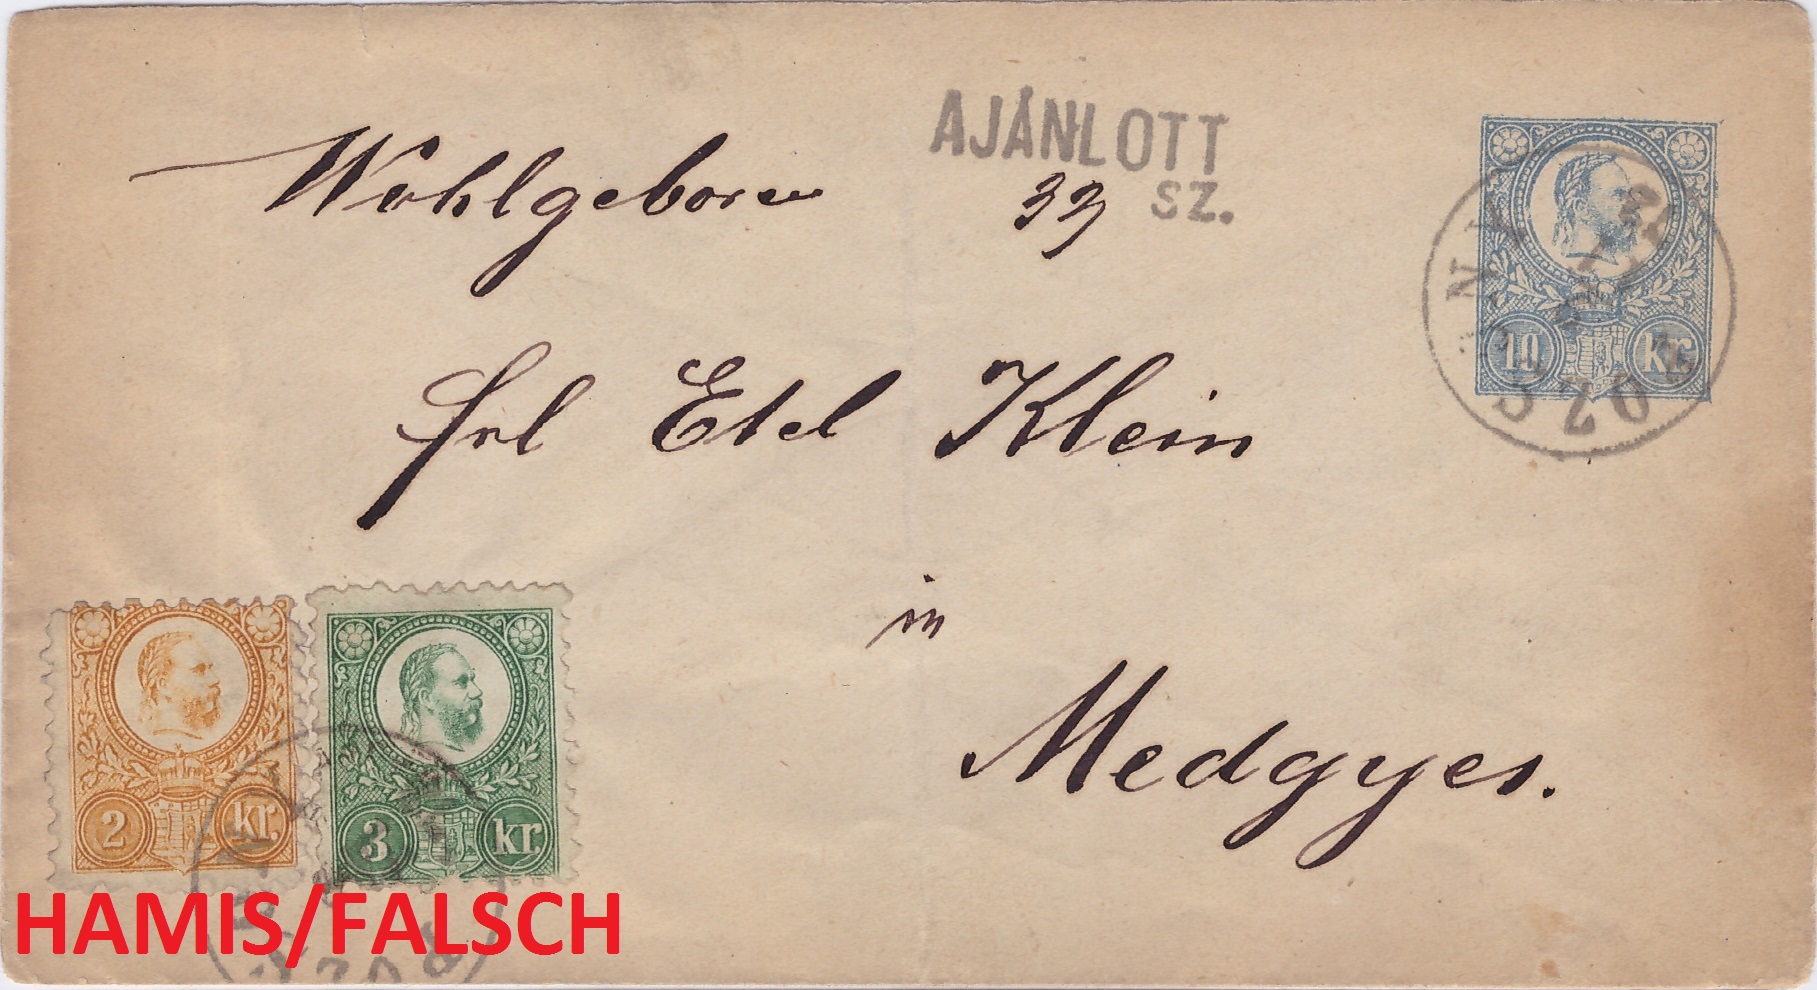 AJÁNLOTT
Wohlgeboren 33 SZ.
10 kr.
Frl Etel Klein
in
Medgyes.
2 kr. 3 kr.
HAMIS/FALSCH